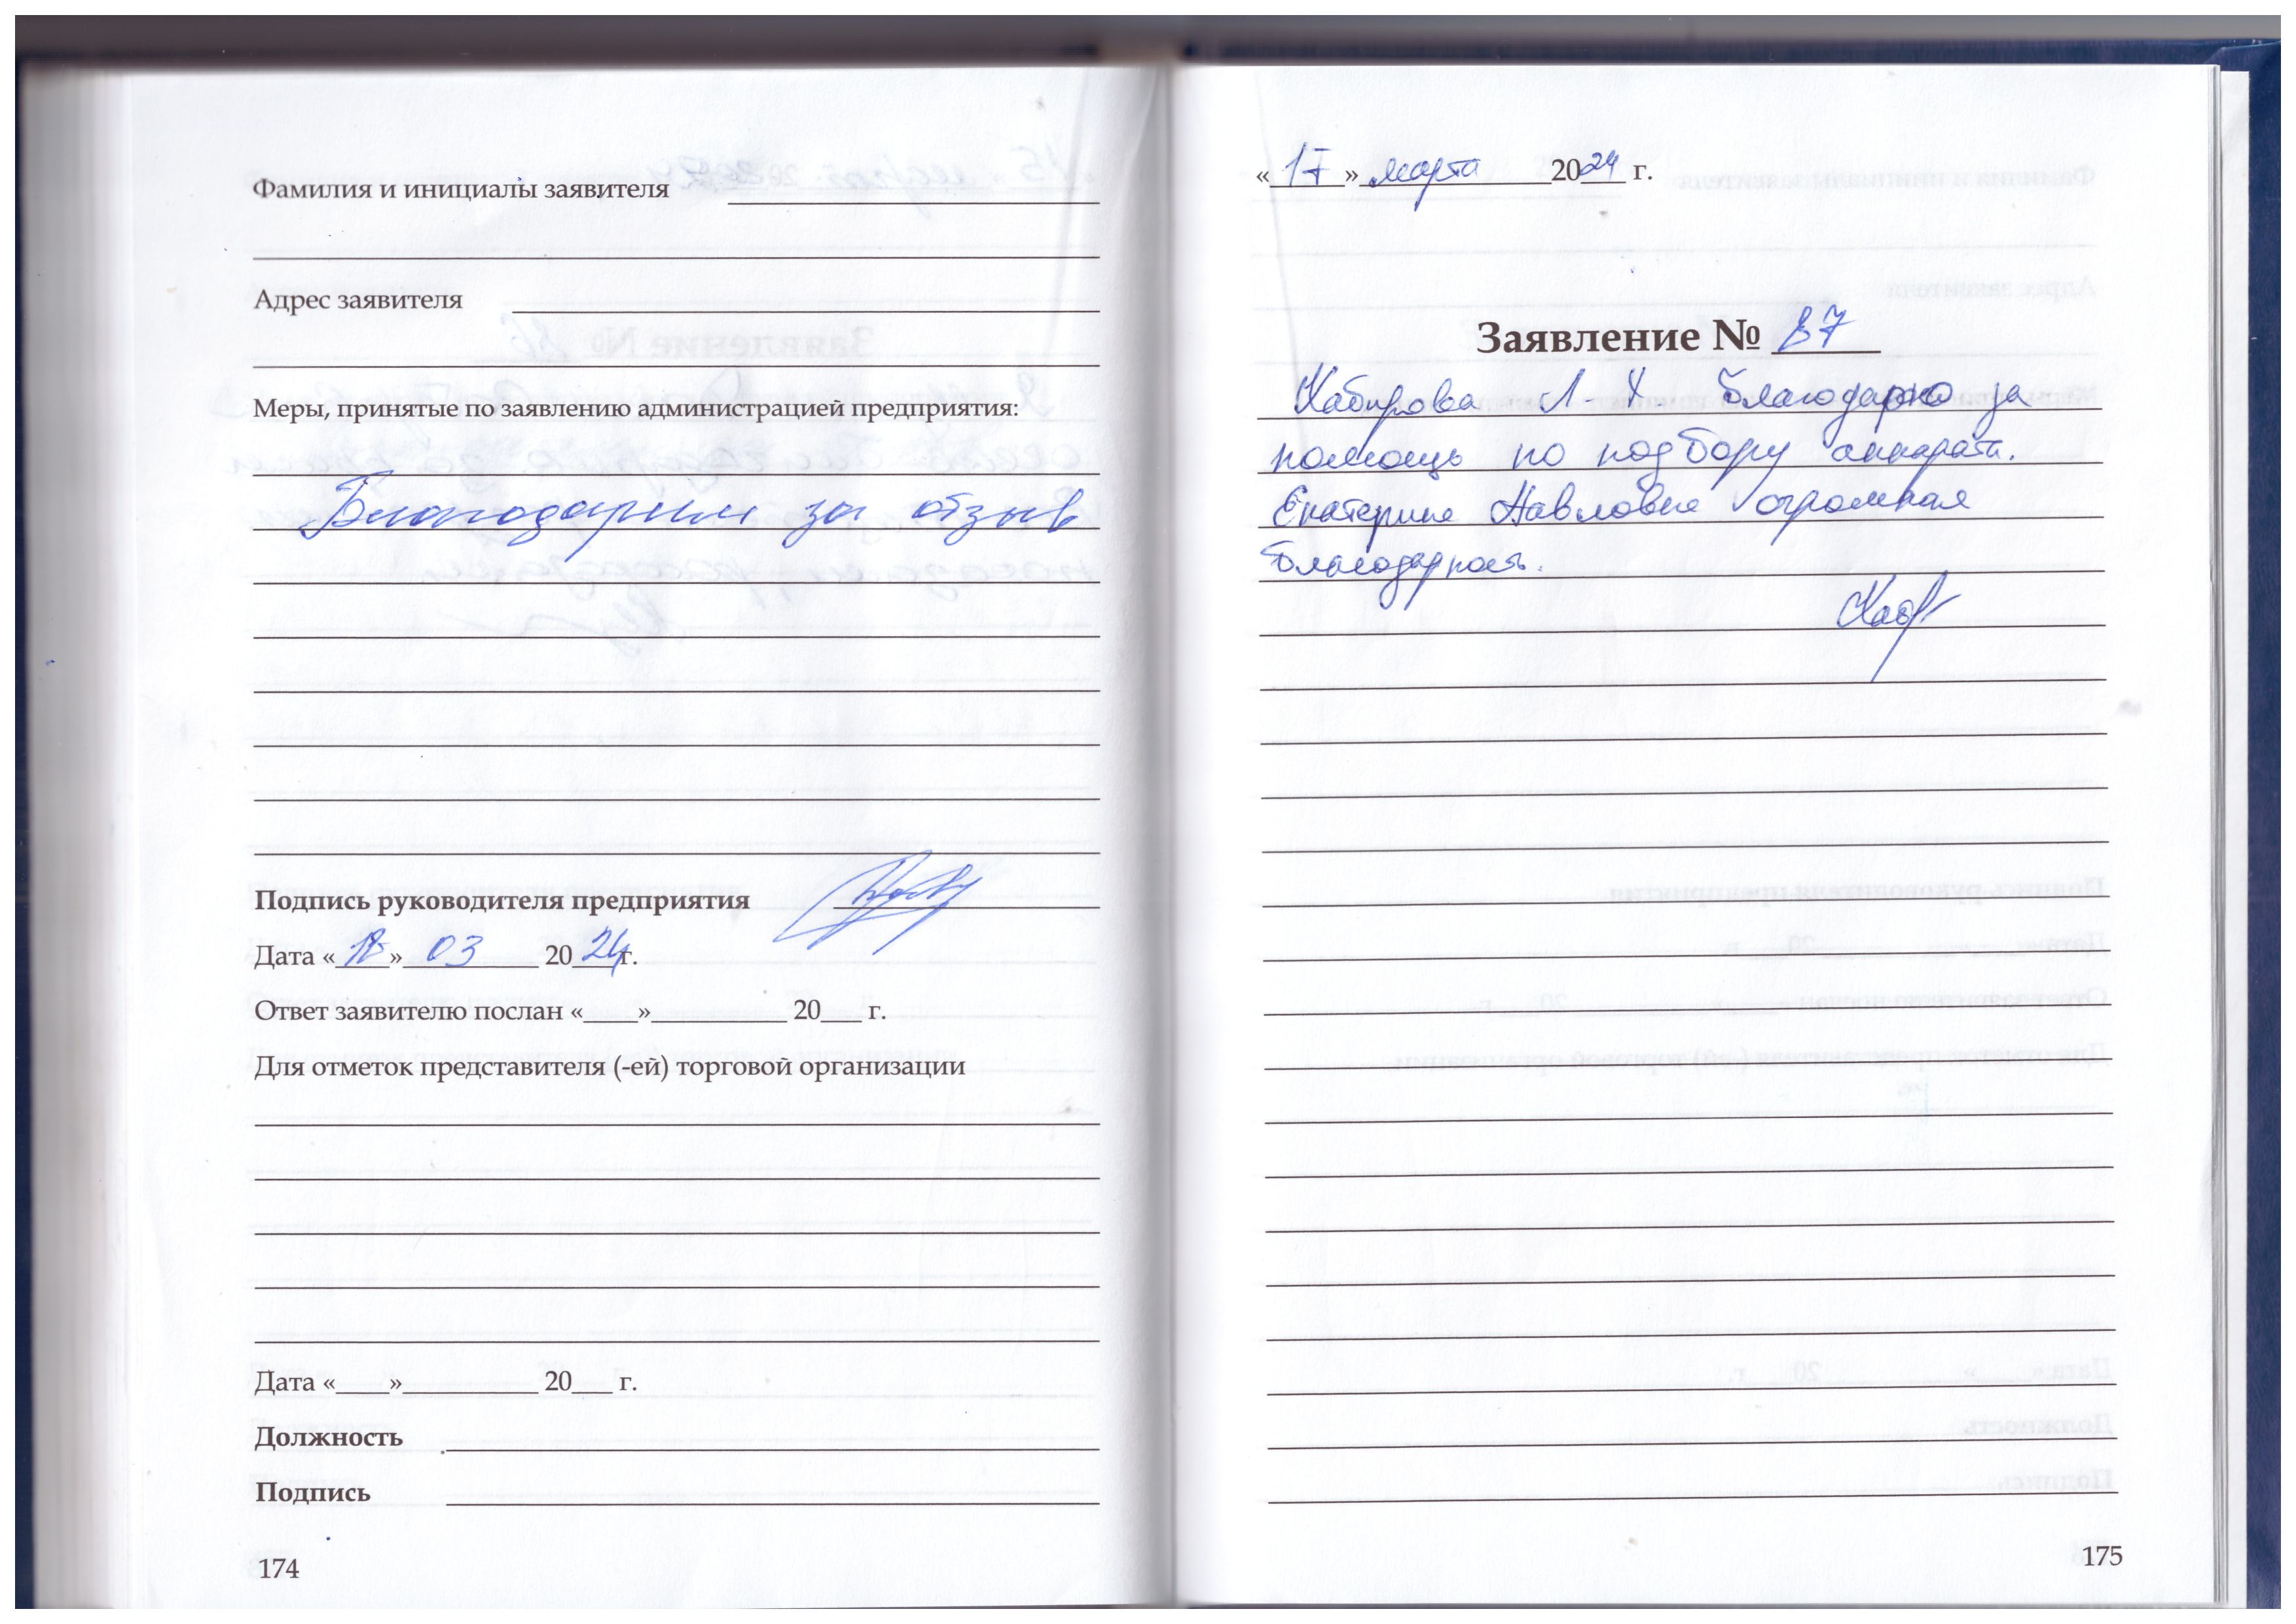 Фамилия и инициалы заявителя
Адрес заявителя
Меры, принятые по заявлению администрацией предприятия:
Благодарим за отзыв
Подпись руководителя предприятия
Дата «18» 03 2024г.
Ответ заявителю послан «____»__________ 20___ г.
Для отметок представителя (-ей) торговой организации
Дата «____»__________ 20___ г.
Должность
Подпись
174
«17» марта 2024 г.
Заявление № 87
Хабирова Л. Х. благодарю за
помощь по подбору аппарата.
Екатерине Павловне огромная
благодарность.
175